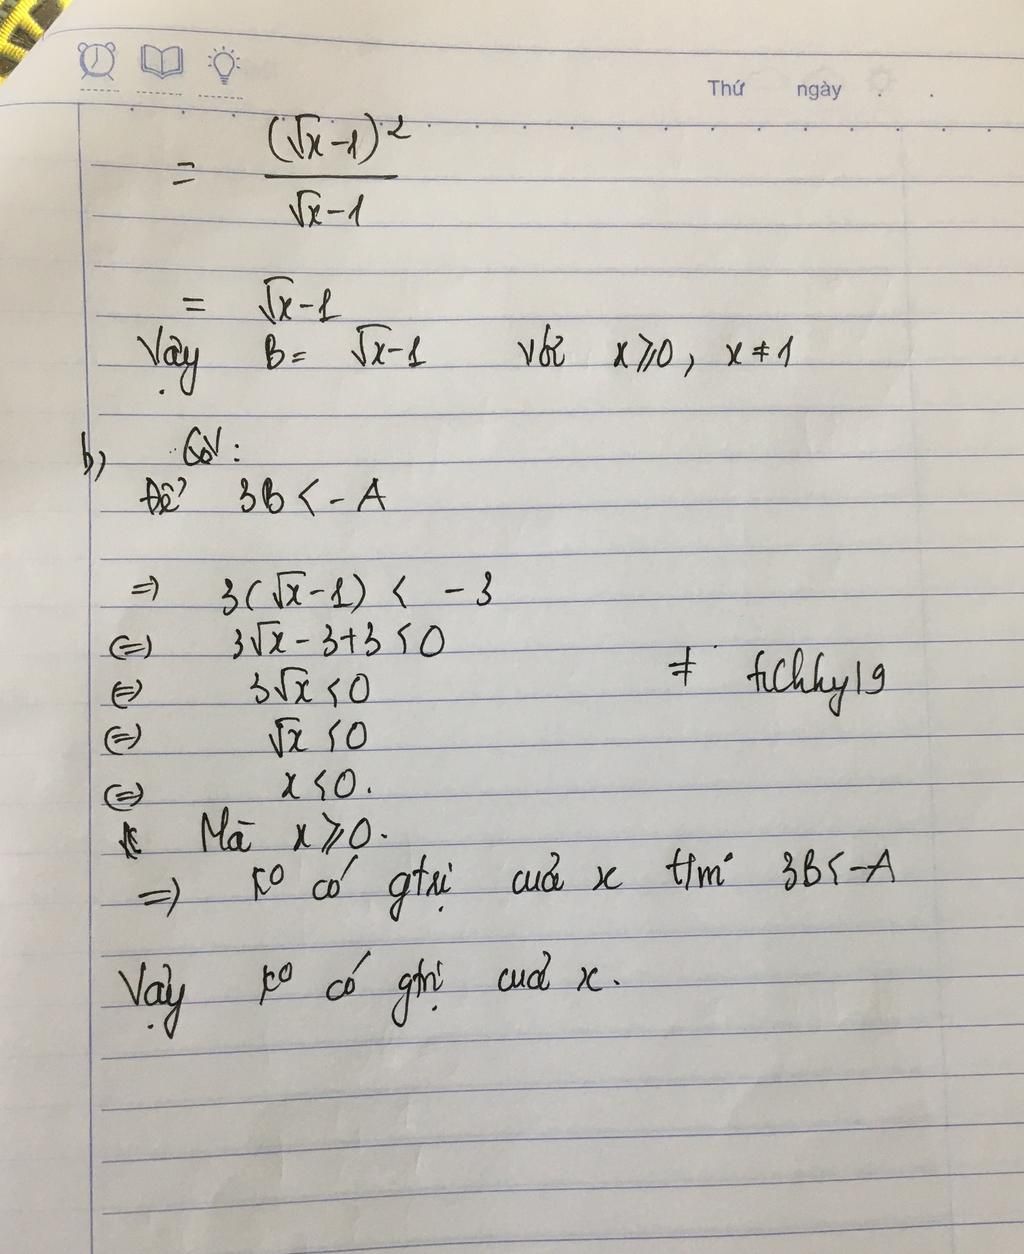 Thứ ngày
= (√x-1)²/(√x-1)
= √x-1
Vậy B= √x-1 với x⩾0, x≠1
b)
Để 3B < - A
=> 3(√x-1) < - 3
(=) 3√x - 3+3 <0
(=) 3√x <0
(=) √x <0
(=) x <0.
Mà x⩾0.
=> ko có gtrị cuả x t/m 3B<-A
Vậy ko có gtrị cuả x.